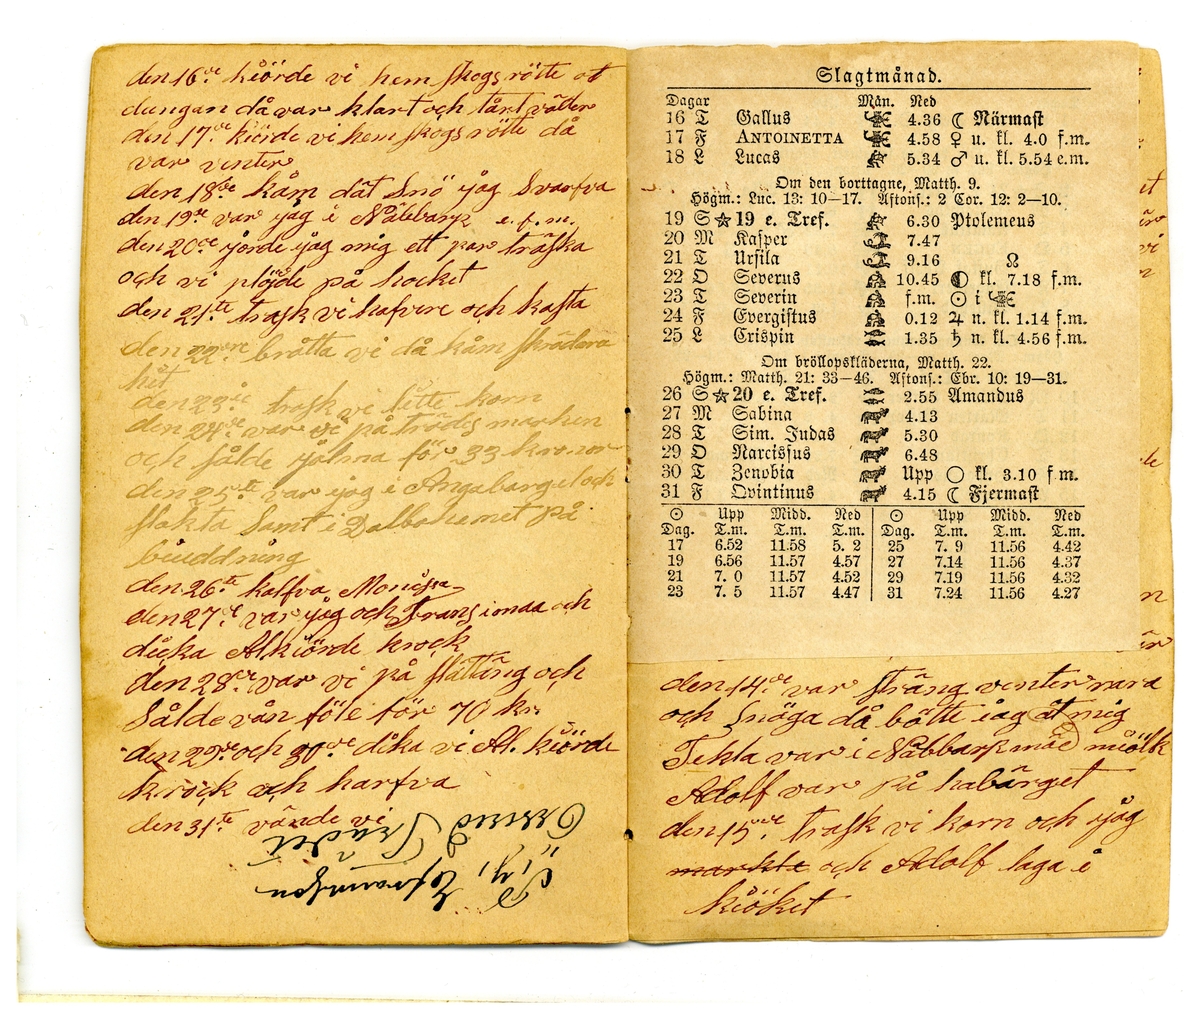 den 16de kiörde vi hem skogsrötte ot
dungan då var klart och tårt väller
den 17de kiörde vi hem skogs rötte då
var vinter
den 18de kåm dåt Snö ijag Svarfva
den 19de var ijag i Nåbbarp e. f. m.
den 20de jorde ijag mig ett par träska
och vi plöjde på hocket
den 21ste trask vi hafvire och kasta
den 22dre bråtta vi då kåm skrädara
hit
den 23de trask vi litte korn
den 24de var vi på trädesmarken
och sålde sjölma för 33 kronor
den 25te var ijag i Angabarget och
slakta Samt i Dalbohemet på
biuddning
den 26te kalfva
den 27de var ijag och Frans i maa och
dicka Al kiörde krock
den 28de var vi på slättäng och
Sålde vån föle för 70 kr.
den 29de och 30de dika vi Al. kiörde
krock och harfva
den 31te vände vi
Slagtmånad.
Dagar Mån. Ned
16 T Gallus 4.36 ☾ Närmast
17 F ANTOINETTA 4.58 ♀ u. kl. 4.0 f.m.
18 L Lucas 5.34 ♂ u. kl. 5.54 e.m.
Om den borttagne, Matth. 9.
Högm.: Luc. 13: 10—17. Aftons.: 2 Cor. 12: 2—10.
19 S ☆ 19 e. Tref. 6.30 Ptolemeus
20 M Kasper 7.47
21 T Ursila 9.16 ☊
22 O Severus 10.45 ◐ kl. 7.18 f.m.
23 T Severin f.m. ☉ i
24 F Evergistus 0.12 ♃ n. kl. 1.14 f.m.
25 L Crispin 1.35 ♄ n. kl. 4.56 f.m.
Om bröllopskläderna, Matth. 22.
Högm.: Matth. 21: 33—46. Aftons.: Ebr. 10: 19—31.
26 S ☆ 20 e. Tref. 2.55 Amandus
27 M Sabina 4.13
28 T Sim. Judas 5.30
29 O Narcissus 6.48
30 T Zenobia Upp ○ kl. 3.10 f m.
31 F Qvintinus 4.15 ☾ Fjermast
☉ Upp Midd. Ned ☉ Upp Midd. Ned
Dag. T.m. T.m. T.m. Dag. T.m. T.m. T.m.
17 6.52 11.58 5. 2 25 7. 9 11.56 4.42
19 6.56 11.57 4.57 27 7.14 11.56 4.37
21 7. 0 11.57 4.52 29 7.19 11.56 4.32
23 7. 5 11.57 4.47 31 7.24 11.56 4.27
den 14de var sträng vinter vara
och Snöga då bötte ijag åt mig
Tekla var i Nåbbarp mäd miölk
Adolf var på habärget
den 15de trask vi korn och ijag
markta och Adolf laga i
kiöket